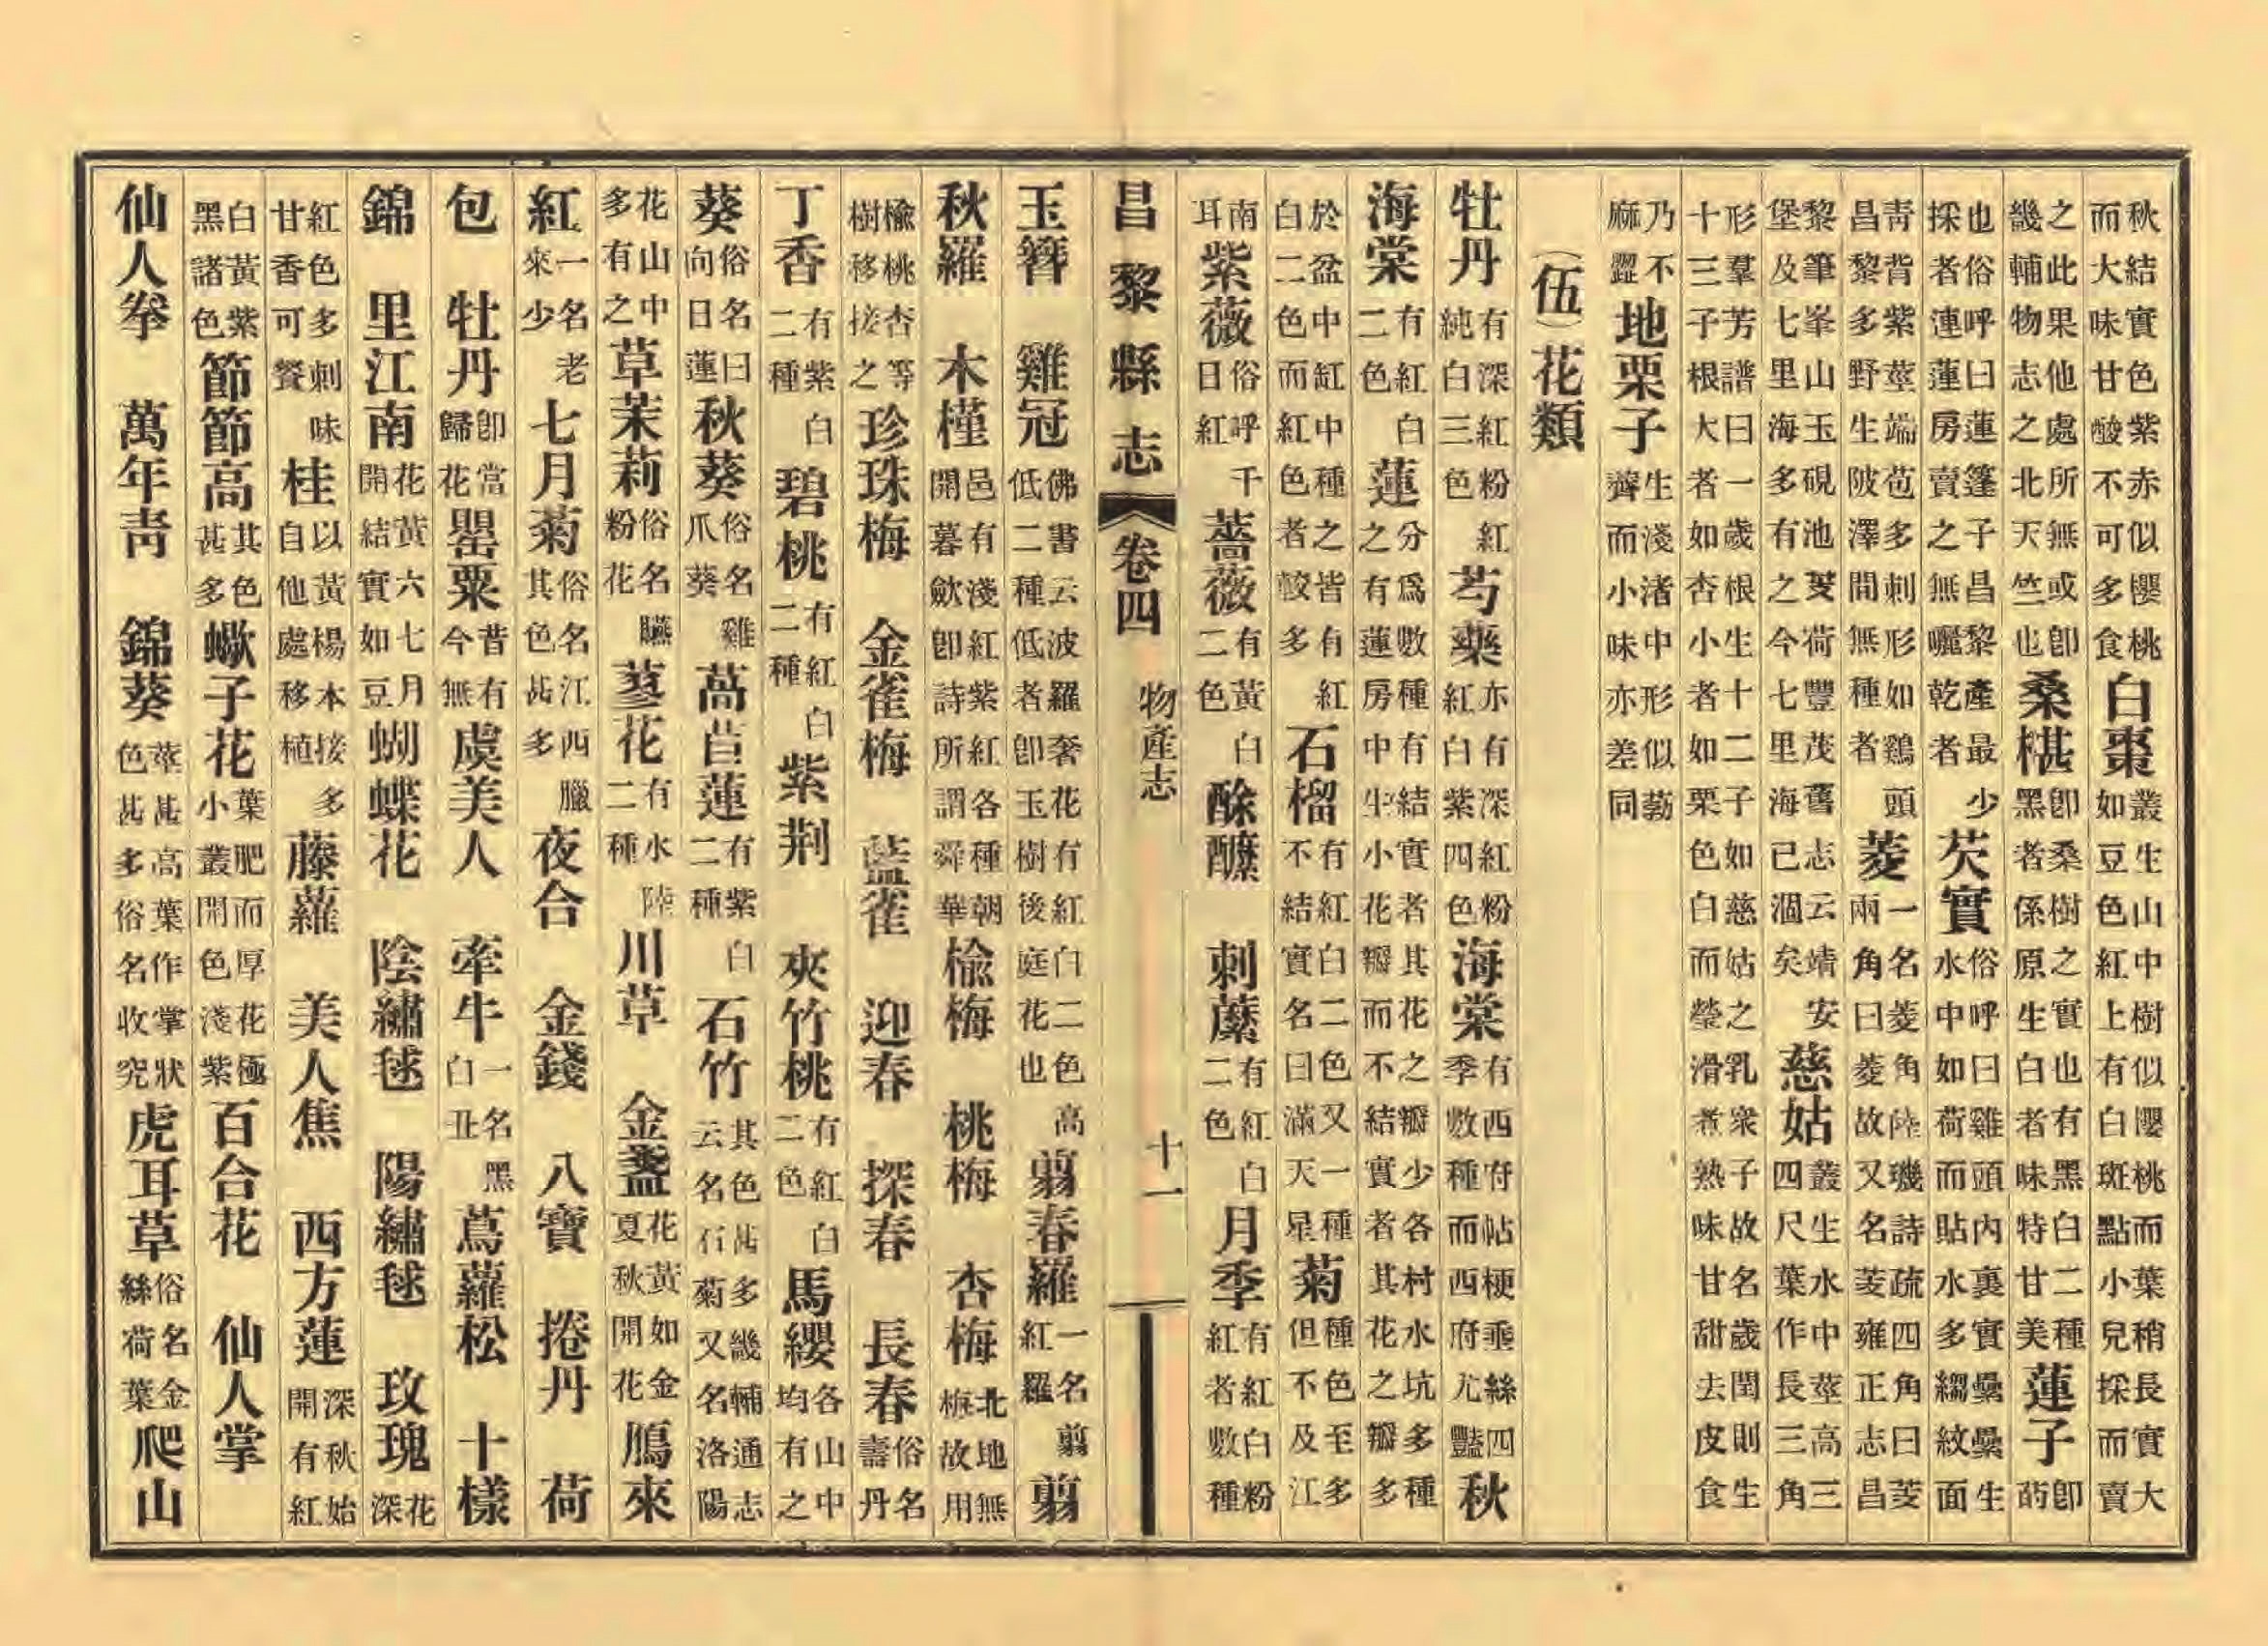 秋結實色紫赤似櫻桃而大味甘酸不可多食白棗叢生山中樹似櫻桃而葉稍長實大如豆色紅上有白斑點小兒採而賣
之此果他處所無或卽畿輔物志之北天竺也桑椹卽桑樹之實也有黑白二種黑者係原生白者味特甘美蓮子卽菂
也俗呼曰蓮蓬子昌黎產最少採者連蓮房賣之無曬乾者芡實俗呼曰雞頭內裏實纍纍生水中如荷而貼水多縐紋面
靑背紫莖端苞多刺形如鷄頭昌黎多野生陂澤間無種者菱一名菱角陸璣詩疏四角曰菱兩角曰菱故又名芰雍正志昌
黎筆峯山玉硯池芰荷豐茂舊志云靖安堡及七里海多有之今七里海已涸矣慈姑叢生水中莖高三四尺葉作長三角
形羣芳譜曰一歲根生十二子如慈姑之乳衆子故名歲閏則生十三子根大者如杏小者如栗子色白而瑩滑煮熟味甘甜去皮食
乃不麻澀地栗子生淺渚中形似荸薺而小味亦差同
（伍）花類
牡丹有深紅粉紅純白三色芍藥亦有深紅粉紅白紫四色海棠有西府帖梗垂絲四季數種而西府尤豔秋
海棠有紅白二色蓮分爲數種有結實者其花之瓣少各村水坑多種之有蓮房中生小花瓣而不結實者其花之瓣多
於盆中缸中種之皆有紅白二色而紅色者較多石榴有紅白二色又一種不結實名曰滿天星菊種色至多但不及江
南耳紫薇俗呼千日紅薔薇有黃白二色酴醿 刺蘪有紅白二色月季有紅白粉紅者數種
昌黎縣志 卷四 物產志 十一
玉簪 雞冠佛書云波羅奢花有紅白二色高低二種低者卽玉樹後庭花也翦春羅一名翦紅羅翦
秋羅 木槿邑有淺紅紫紅各種朝開暮歛卽詩所謂舜華楡梅 桃梅 杏梅北地無梅故用
楡桃杏等樹移接之珍珠梅 金雀梅 藍雀 迎春 探春 長春俗名壽丹
丁香有紫白二種碧桃有紅白二種紫荆 夾竹桃有紅白二色馬纓各山中均有之
葵俗名曰向日蓮秋葵俗名雞爪葵萵苣蓮有紫白二種石竹其色甚多畿輔通志云名石菊又名洛陽
花山中多有之草茉莉俗名臙粉花蓼花有水陸二種川草 金盞花黃如金夏秋開花鴈來
紅一名老來少七月菊俗名江西臘其色甚多夜合 金錢 八寶 捲丹 荷
包牡丹卽當歸花罌粟昔有今無虞美人 牽牛一名黑白丑蔦蘿松 十樣
錦 里江南花黃六七月開結實如豆蝴蝶花 陰繡毬 陽繡毬 玫瑰花深
紅色多刺味甘香可餐桂以黃楊本接多自他處移植藤蘿 美人焦 西方蓮深秋始開有紅
白黃紫黑諸色節節高其色甚多蠍子花葉肥而厚花極小叢開色淺紫百合花 仙人掌
仙人拳 萬年靑 錦葵莖甚高葉作掌狀色甚多俗名收究虎耳草俗名金絲荷葉爬山